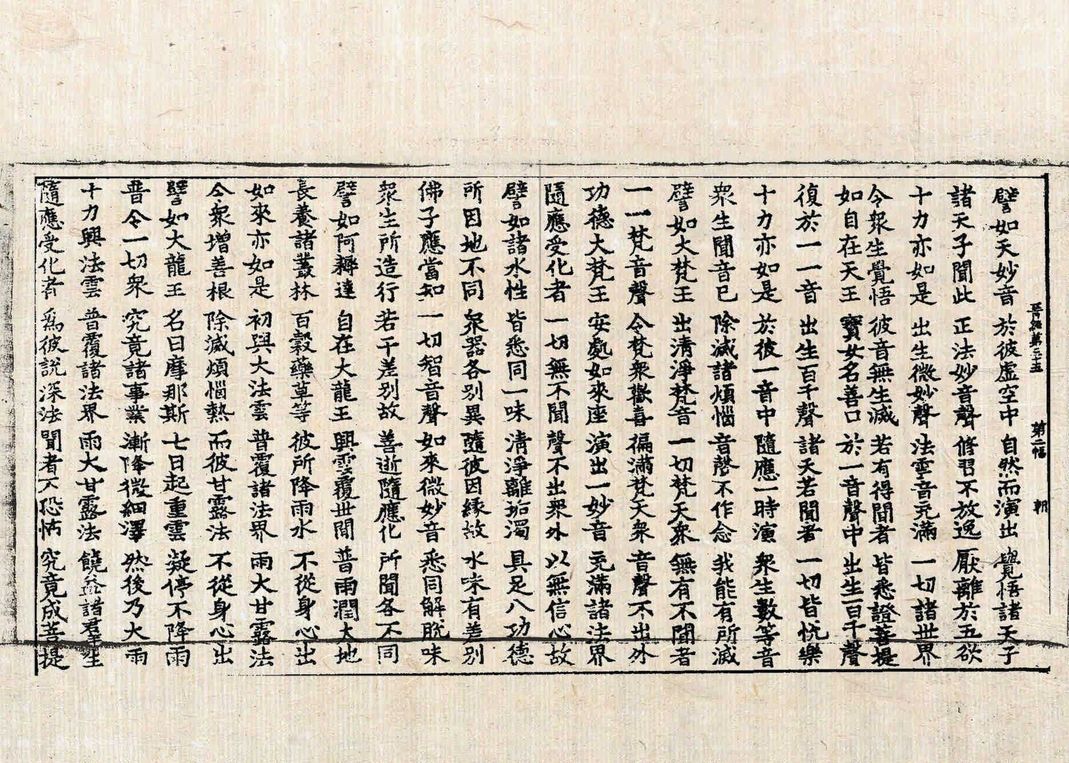 晉經第三十五　第二幅　朝
譬如天妙音　於彼虛空中　自然而演出　覺悟諸天子
諸天子聞此　正法妙音聲　修習不放逸　厭離於五欲
十力亦如是　出生微妙聲　法雷音充滿　一切諸世界
令衆生覺悟　彼音無生滅　若有得聞者　皆悉證菩提
如自在天王　寶女名善口　於一音聲中　出生百千聲
復於一一音　出生百千聲　諸天若聞者　一切皆忻樂
十力亦如是　於彼一音中　隨應一時演　衆生數等音
衆生聞音已　除滅諸煩惱　音聲不作念　我能有所滅
譬如大梵王　出清淨梵音　一切梵天衆　無有不聞者
一一梵音聲　令梵衆歡喜　徧滿梵天衆　音聲不出外
功德大梵王　安處如來座　演出一妙音　充滿諸法界
隨應受化者　一切無不聞　聲不出衆外　以無信心故
譬如諸水性　皆悉同一味　清淨離垢濁　具足八功德
所因地不同　衆器各別異　隨彼因緣故　水味有差別
佛子應當知　一切智音聲　如來微妙音　悉同解脫味
衆生所造行　若干差別故　善逝隨應化　所聞各不同
譬如阿耨達　自在大龍王　興雲覆世間　普雨潤大地
長養諸叢林　百穀藥草等　彼所降雨水　不從身心出
如來亦如是　初興大法雲　普覆諸法界　雨大甘露法
令衆增善根　除滅煩惱熱　而彼甘露法　不從身心出
譬如大龍王　名曰摩那斯　七日起重雲　凝停不降雨
普令一切衆　究竟諸事業　漸降微細澤　然後乃大雨
十力興法雲　普覆諸法界　雨大甘露法　饒益諸羣生
隨應受化者　爲彼說深法　聞者不恐怖　究竟成菩提